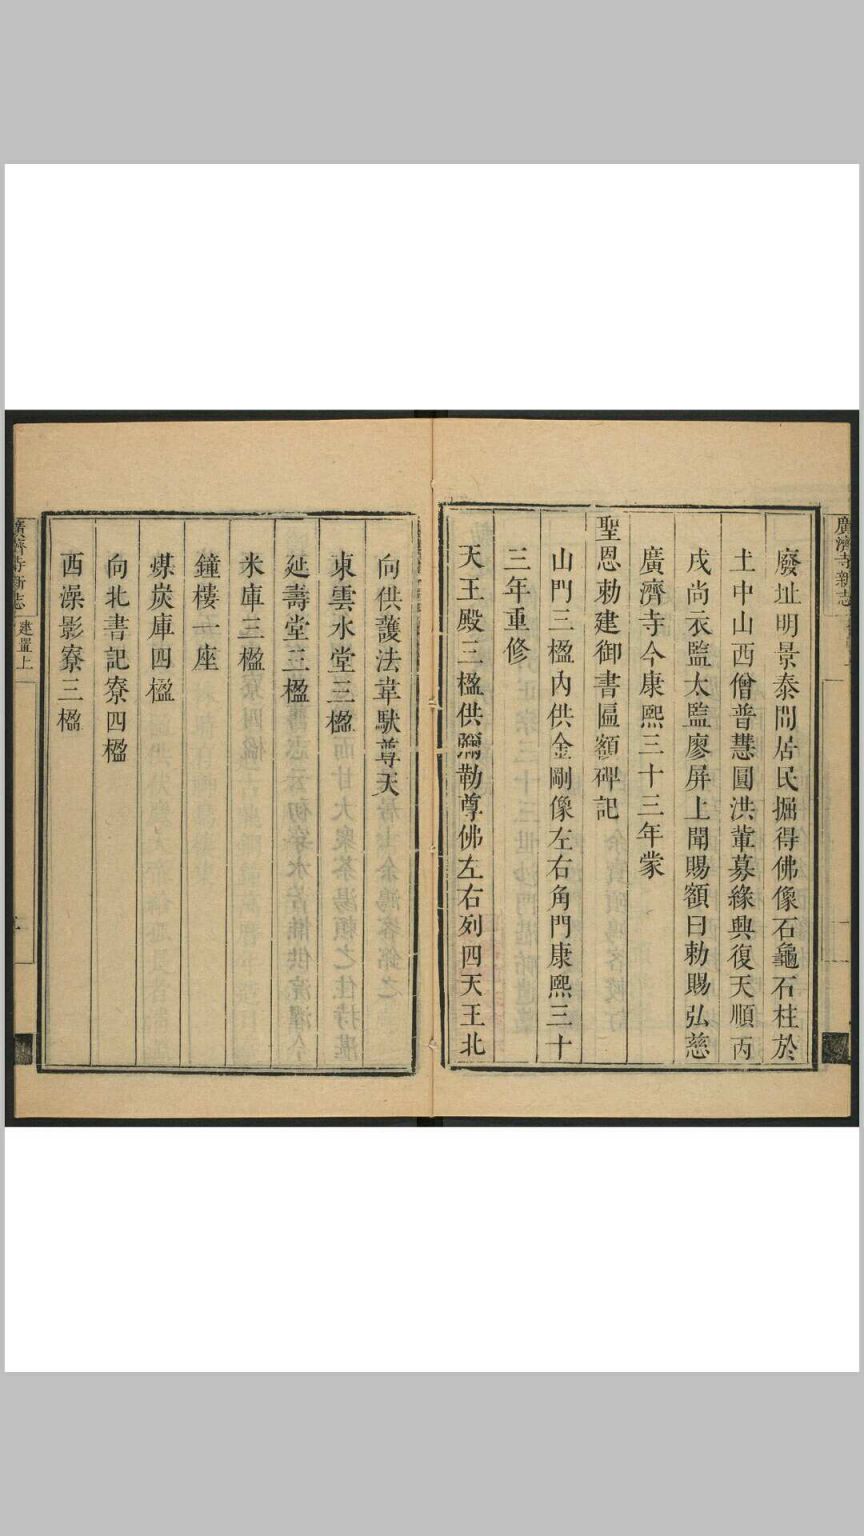 廣濟寺新志
廢址明景泰間居民掘得佛像石龜石柱於
土中山西僧普慧圓洪輩募緣興復天順丙
戌尚衣監太監廖屏上聞賜額曰勅賜弘慈
廣濟寺今康熙三十三年蒙
聖恩勅建御書匾額碑記
山門三楹內供金剛像左右角門康熙三十
三年重修
天王殿三楹供彌勒尊佛左右列四天王北
向供護法韋馱尊天
東雲水堂三楹
延壽堂三楹
米庫三楹
鐘樓一座
煤炭庫四楹
向北書記寮四楹
西澡影寮三楹
廣濟寺新志
建置上